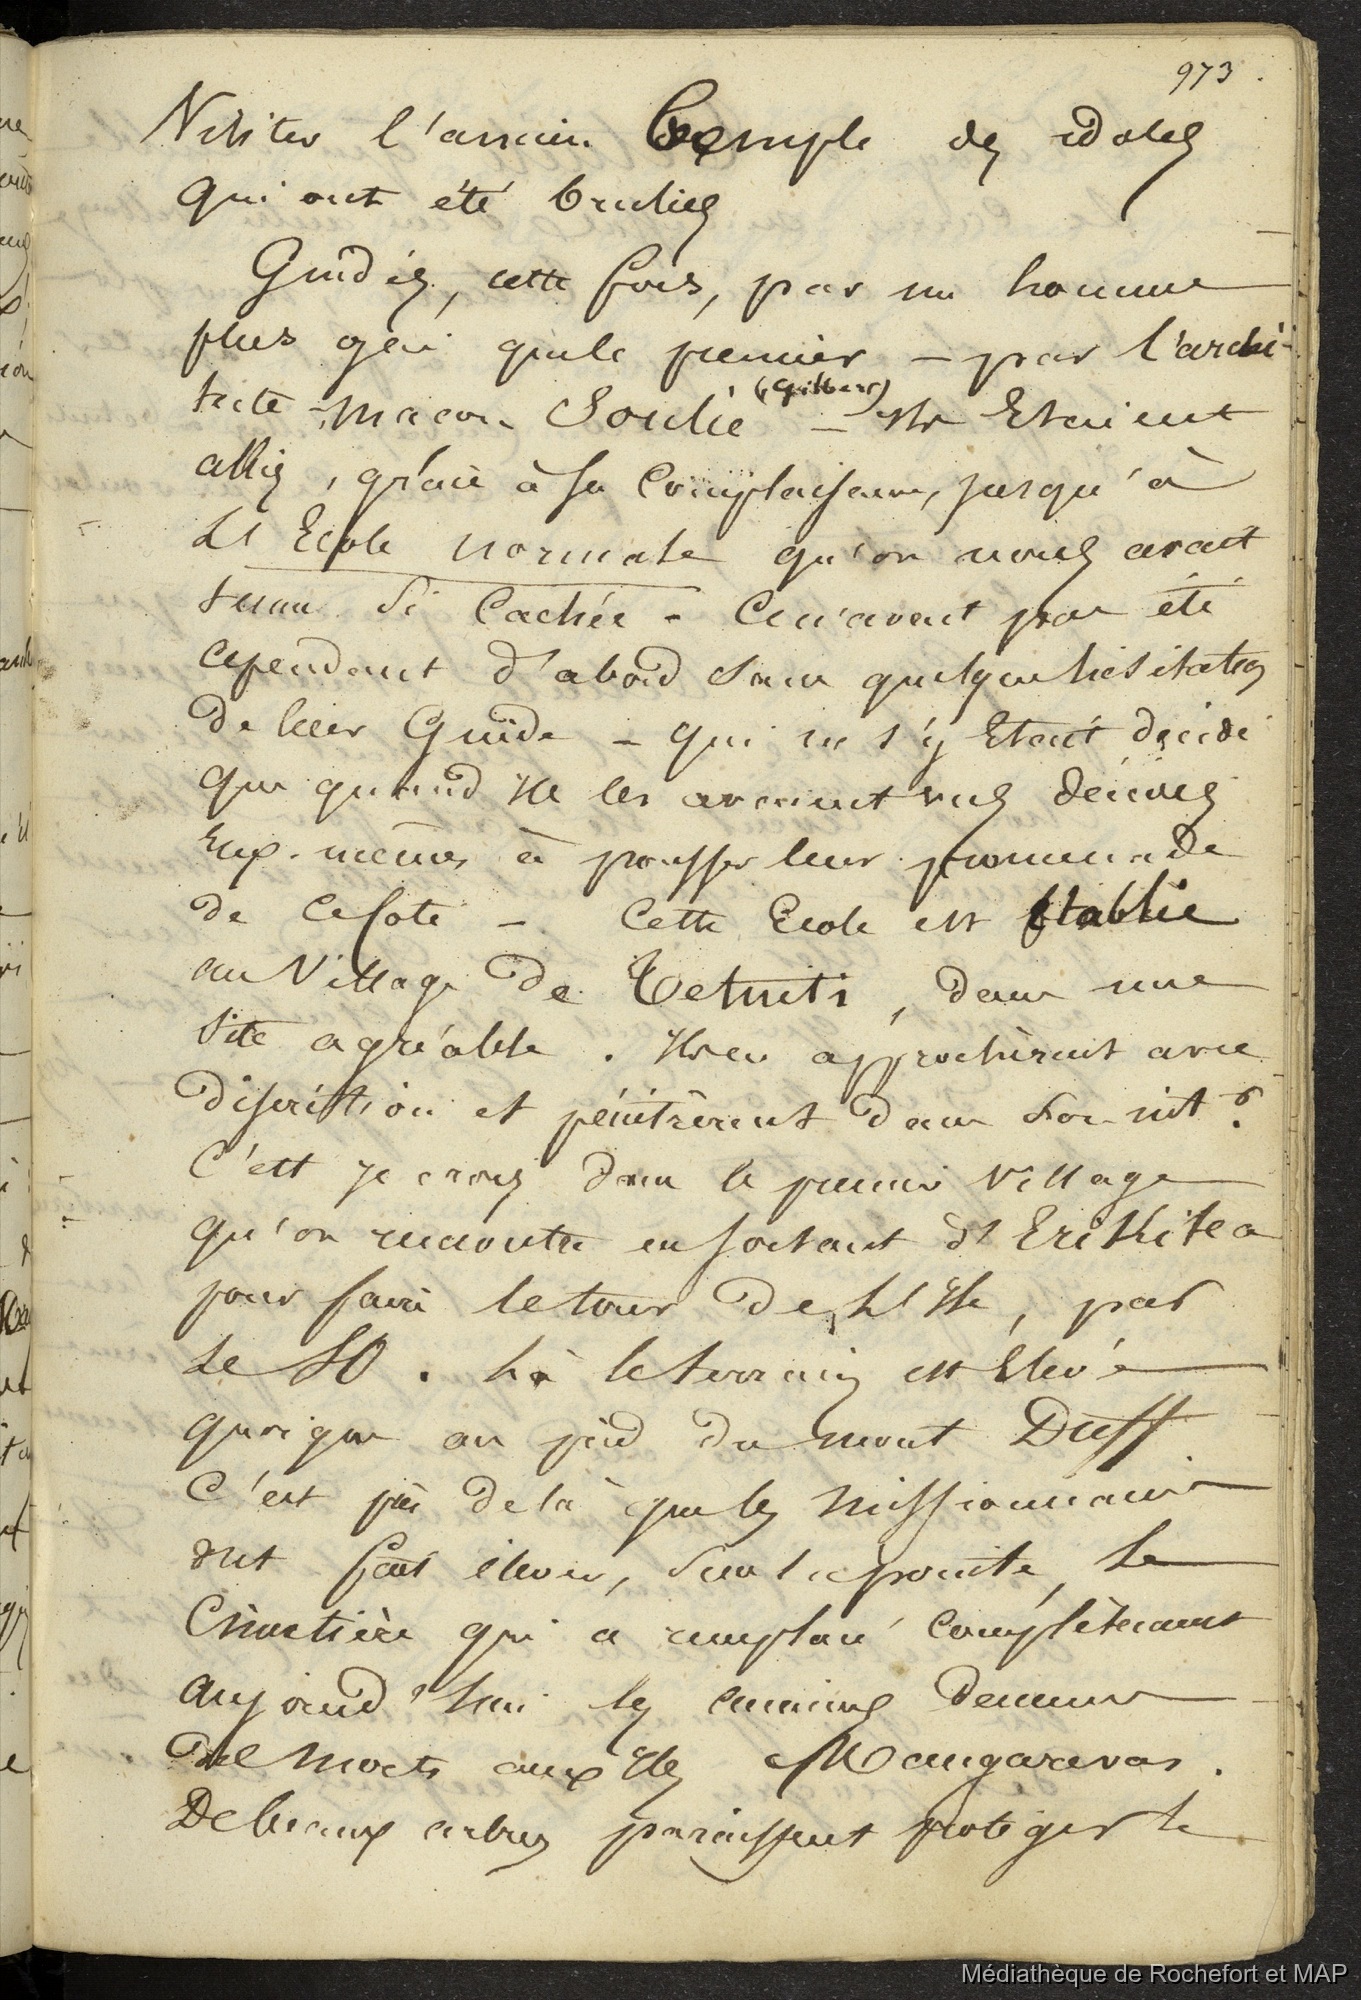 973.
Visiter l'ancien Temple des idoles
qui ont été brulées
Guidés, cette fois, par un homme
plus gai que le premier – par l'archi-
tecte-maçon Soulié (Gilbert) – Ils Etaient
allés, grâce à sa Complaisance, jusqu'à
L'Ecole normale qu'on nous avait
tenue si Cachée – Ce n'avait pas été
cependant d'abord sans quelque hésitation
de leur Guide – qui ne s'y Etait décidé
que quand Il les avaient vus décidés
Eux-mêmes à pousser leur promenade
de Ce Coté – Cette Ecole est Etablie
au Village De Tetuiti, dans une
site agréable. Ils en approchèrent avec
discrétion et pénétrèrent dans son
C'est je crois dans le premier village
qu'on rencontre en sortant d'Erikitea
pour faire le tour De L'Ile, par
Le SO. Là le terrain est Elevé
quoique au pied du mont Duff
C'est près de là que les Missionnaires
ont fait élever, sur la pointe, Le
Cimetière qui a remplacé Complètement
aujourd'hui les anciennes Demeures
des Morts aux Iles Mangarevas.
De beaux arbres paraissent protéger le
Médiathèque de Rochefort et MAP